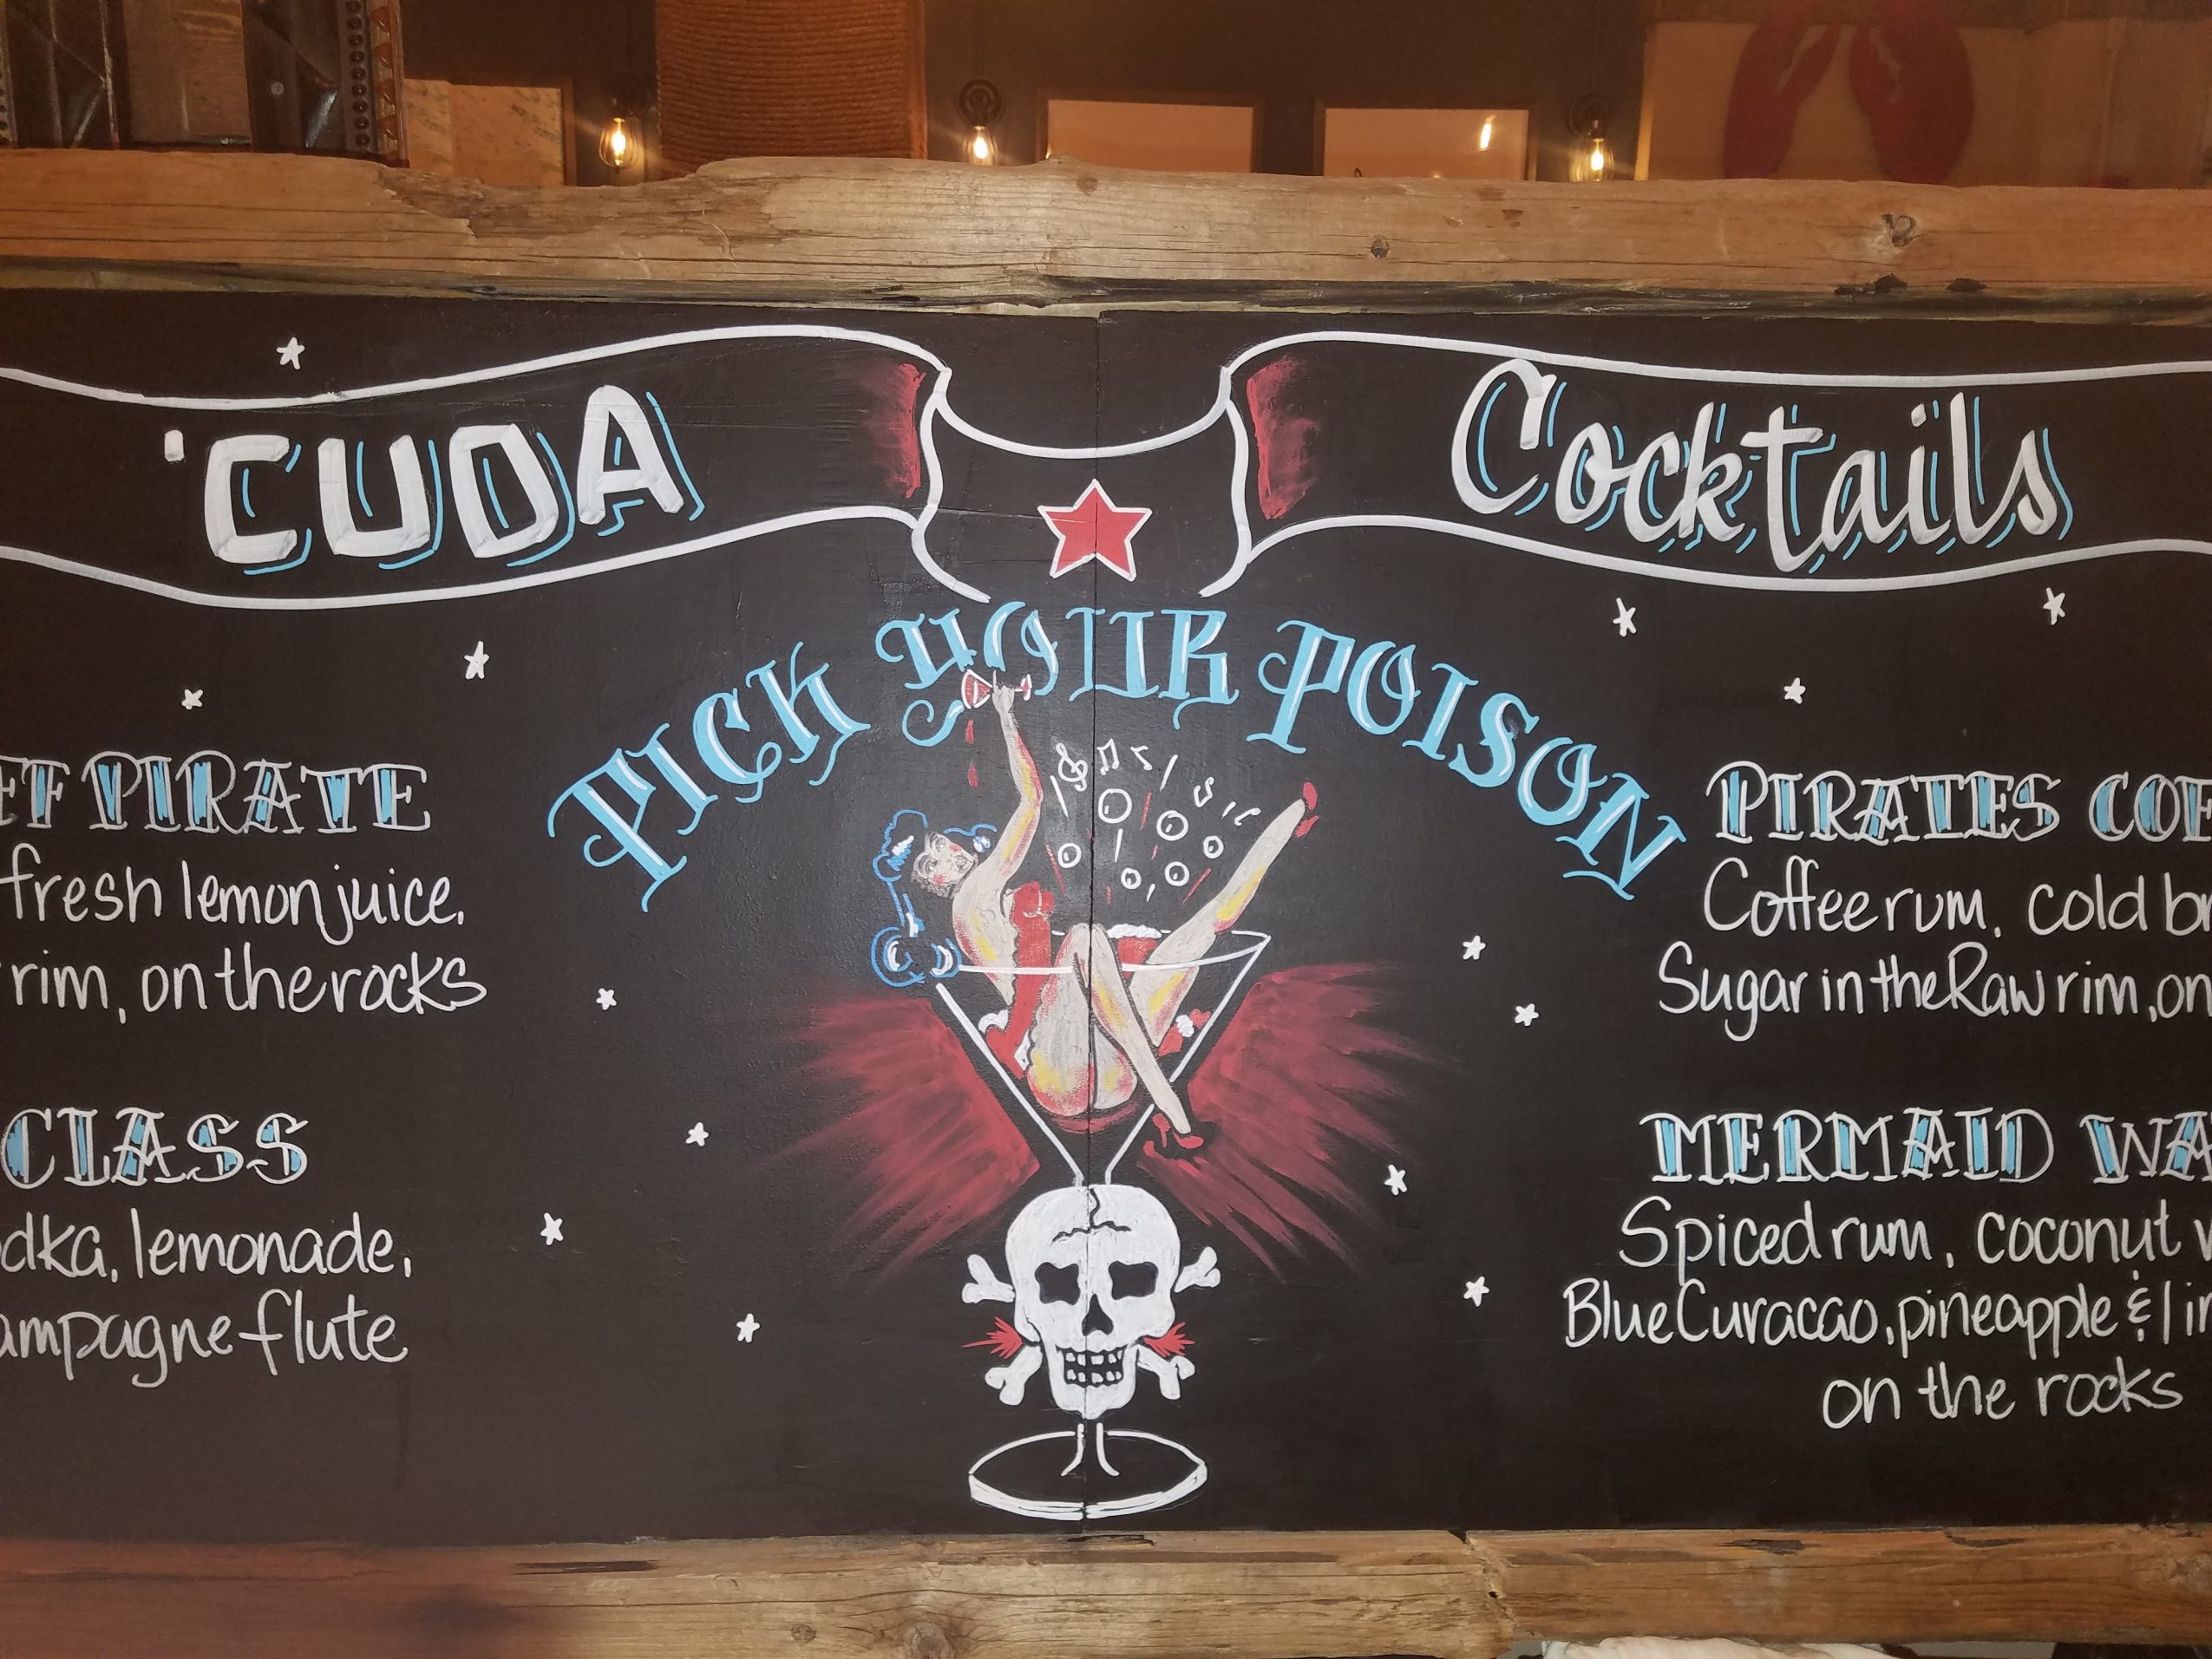 'CUDA Cocktails
PICK YOUR POISON
PIRATE
fresh lemon juice,
rim, on the rocks
CLASS
lemonade,
flute
PIRATES
Coffee rum, cold
Sugar in the Raw rim, on
MERMAID
Spiced rum, coconut
Blue Curacao, pineapple &
on the rocks